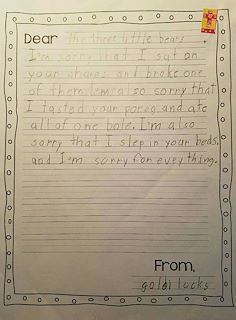 Dear the three little bears,
I'm sorry that I sat on
your chares and broke one
of them. I'm also sorry that
I tasted your poreg and ate
all of one bole. I'm also
sorry that I slep in your beds.
and I'm sorry for everything.
From,
goldi locks